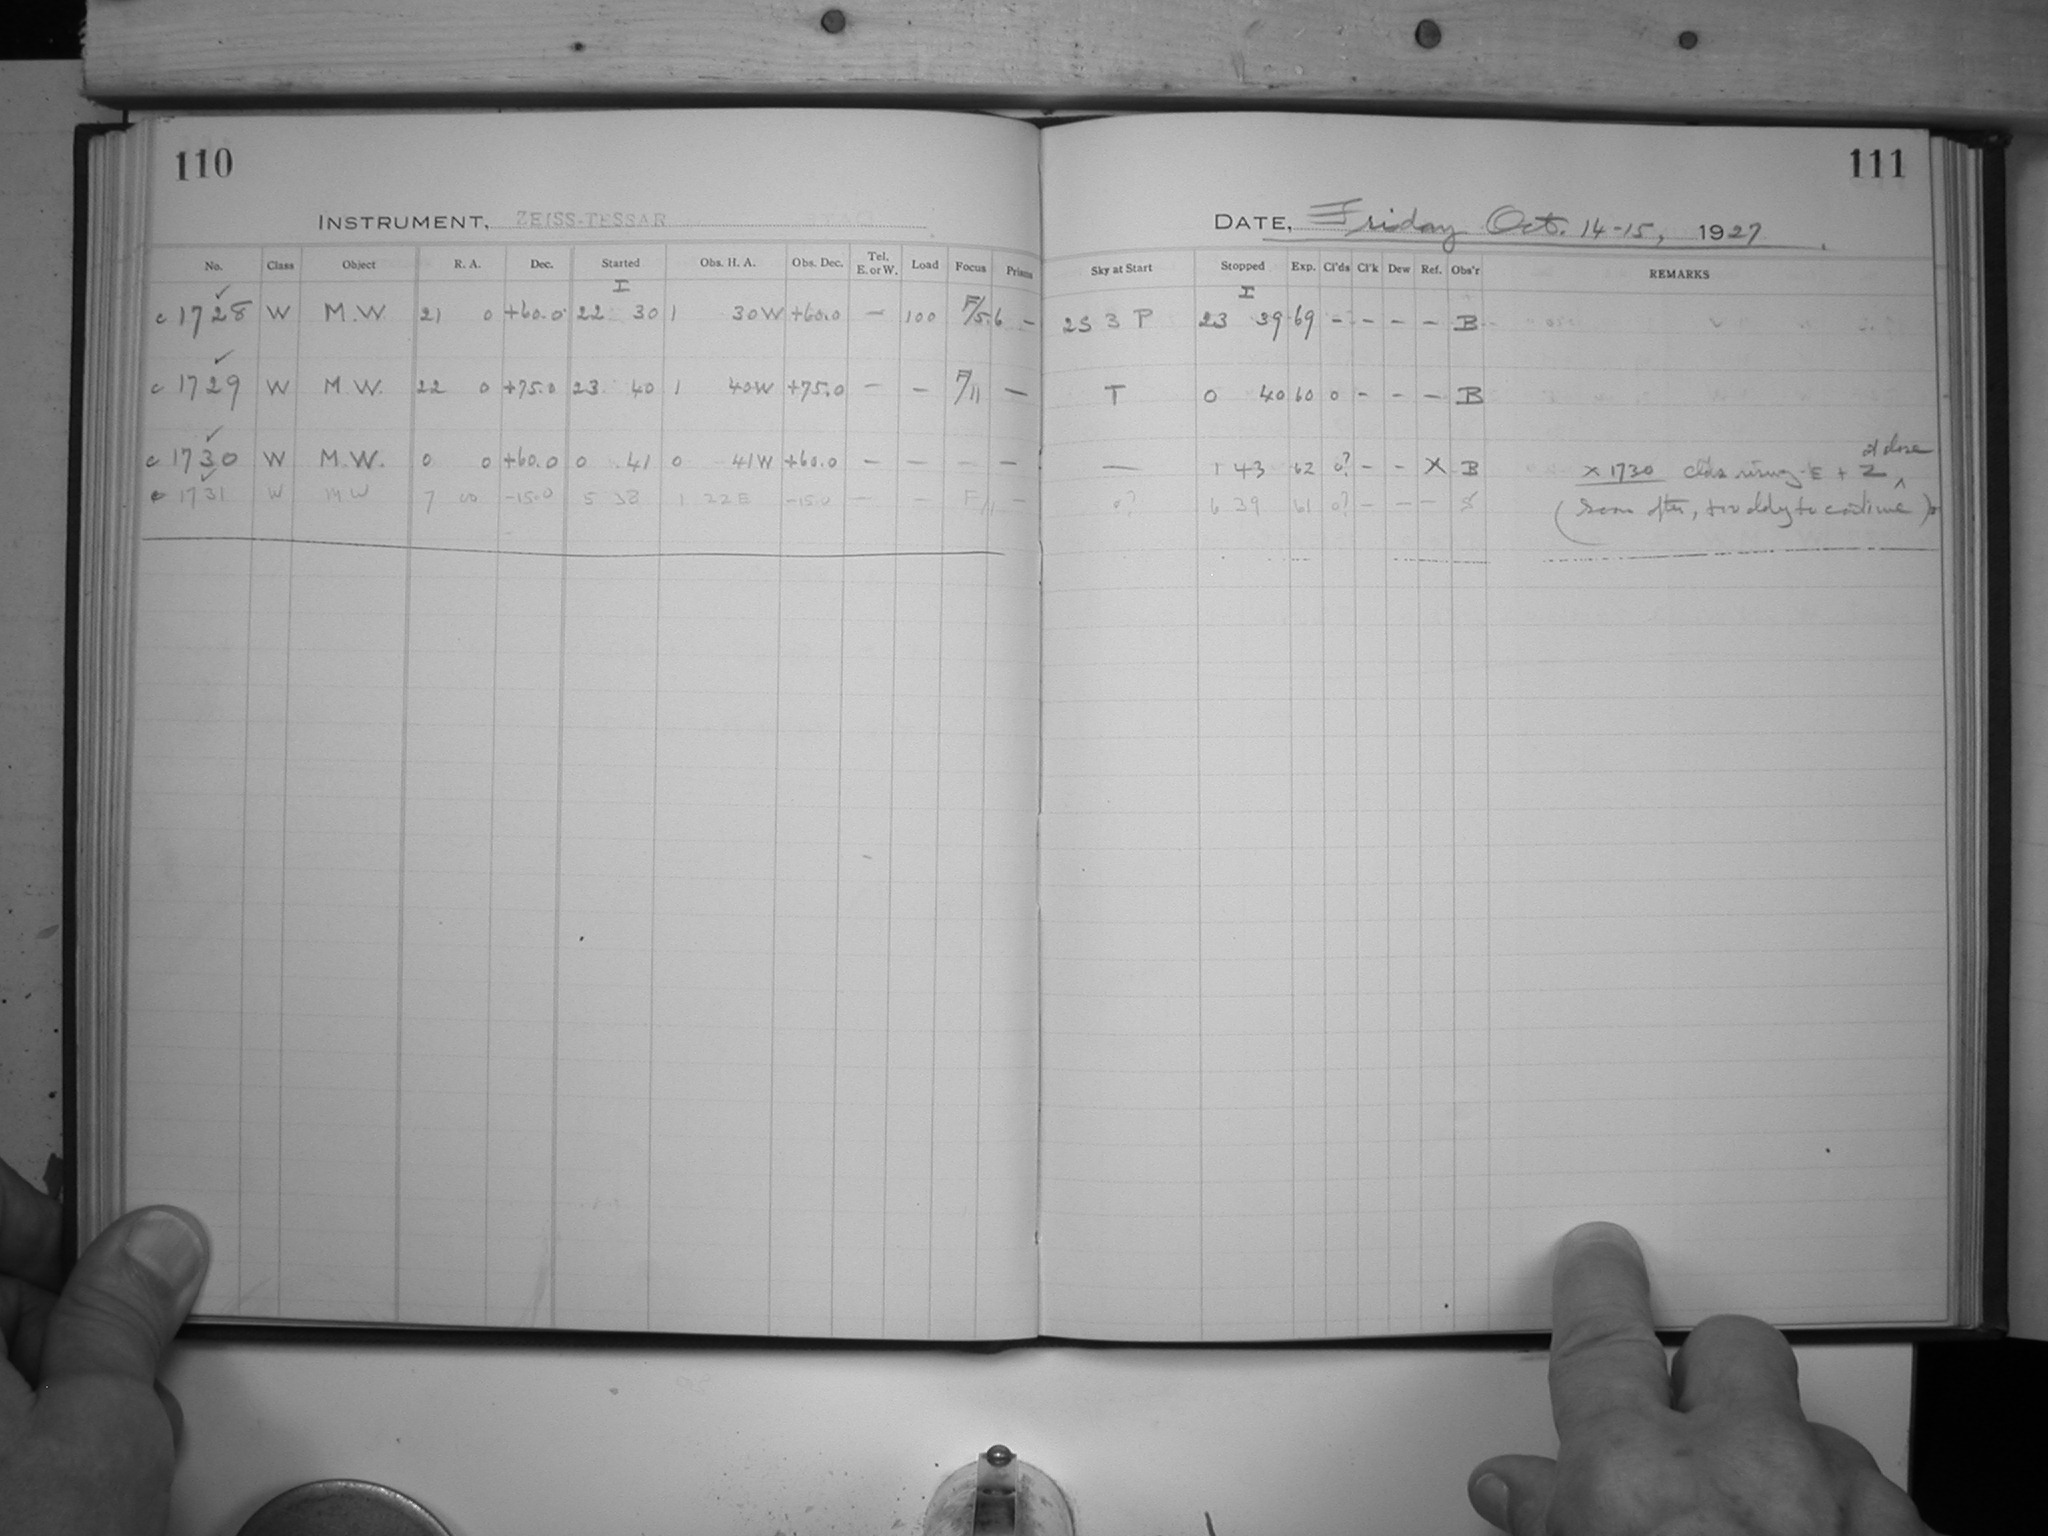 110
INSTRUMENT, ZEISS-TESSAR
No. Class Object R. A. Dec. Started Obs. H. A. Obs. Dec. Tel. E. or W. Load Focus Prisms
I
c 1728 ✓ W M.W. 21 0 +60.0 22 30 1 30W +60.0 — 100 F/5.6 —
c 1729 ✓ W M.W. 22 0 +75.0 23 40 1 40W +75.0 — — F/11 —
c 1730 ✓ W M.W. 0 0 +60.0 0 41 0 41W +60.0 — — — —
c 1731 ✓ W MW 7 00 -15.0 5 38 1 22E -15.0 — — F/11 —
111
DATE, Friday Oct. 14-15, 1927
Sky at Start Stopped Exp. Cl'ds Cl'k Dew Ref. Obs'r REMARKS
I
2S 3 P 23 39 69 - - - - B
T 0 40 60 0 - - - B
at close
— 1 43 62 0? - - X B x 1730 clds rising E + Z ^
0? 6 39 61 0? - - - S (Soon after, too cldy to continue)